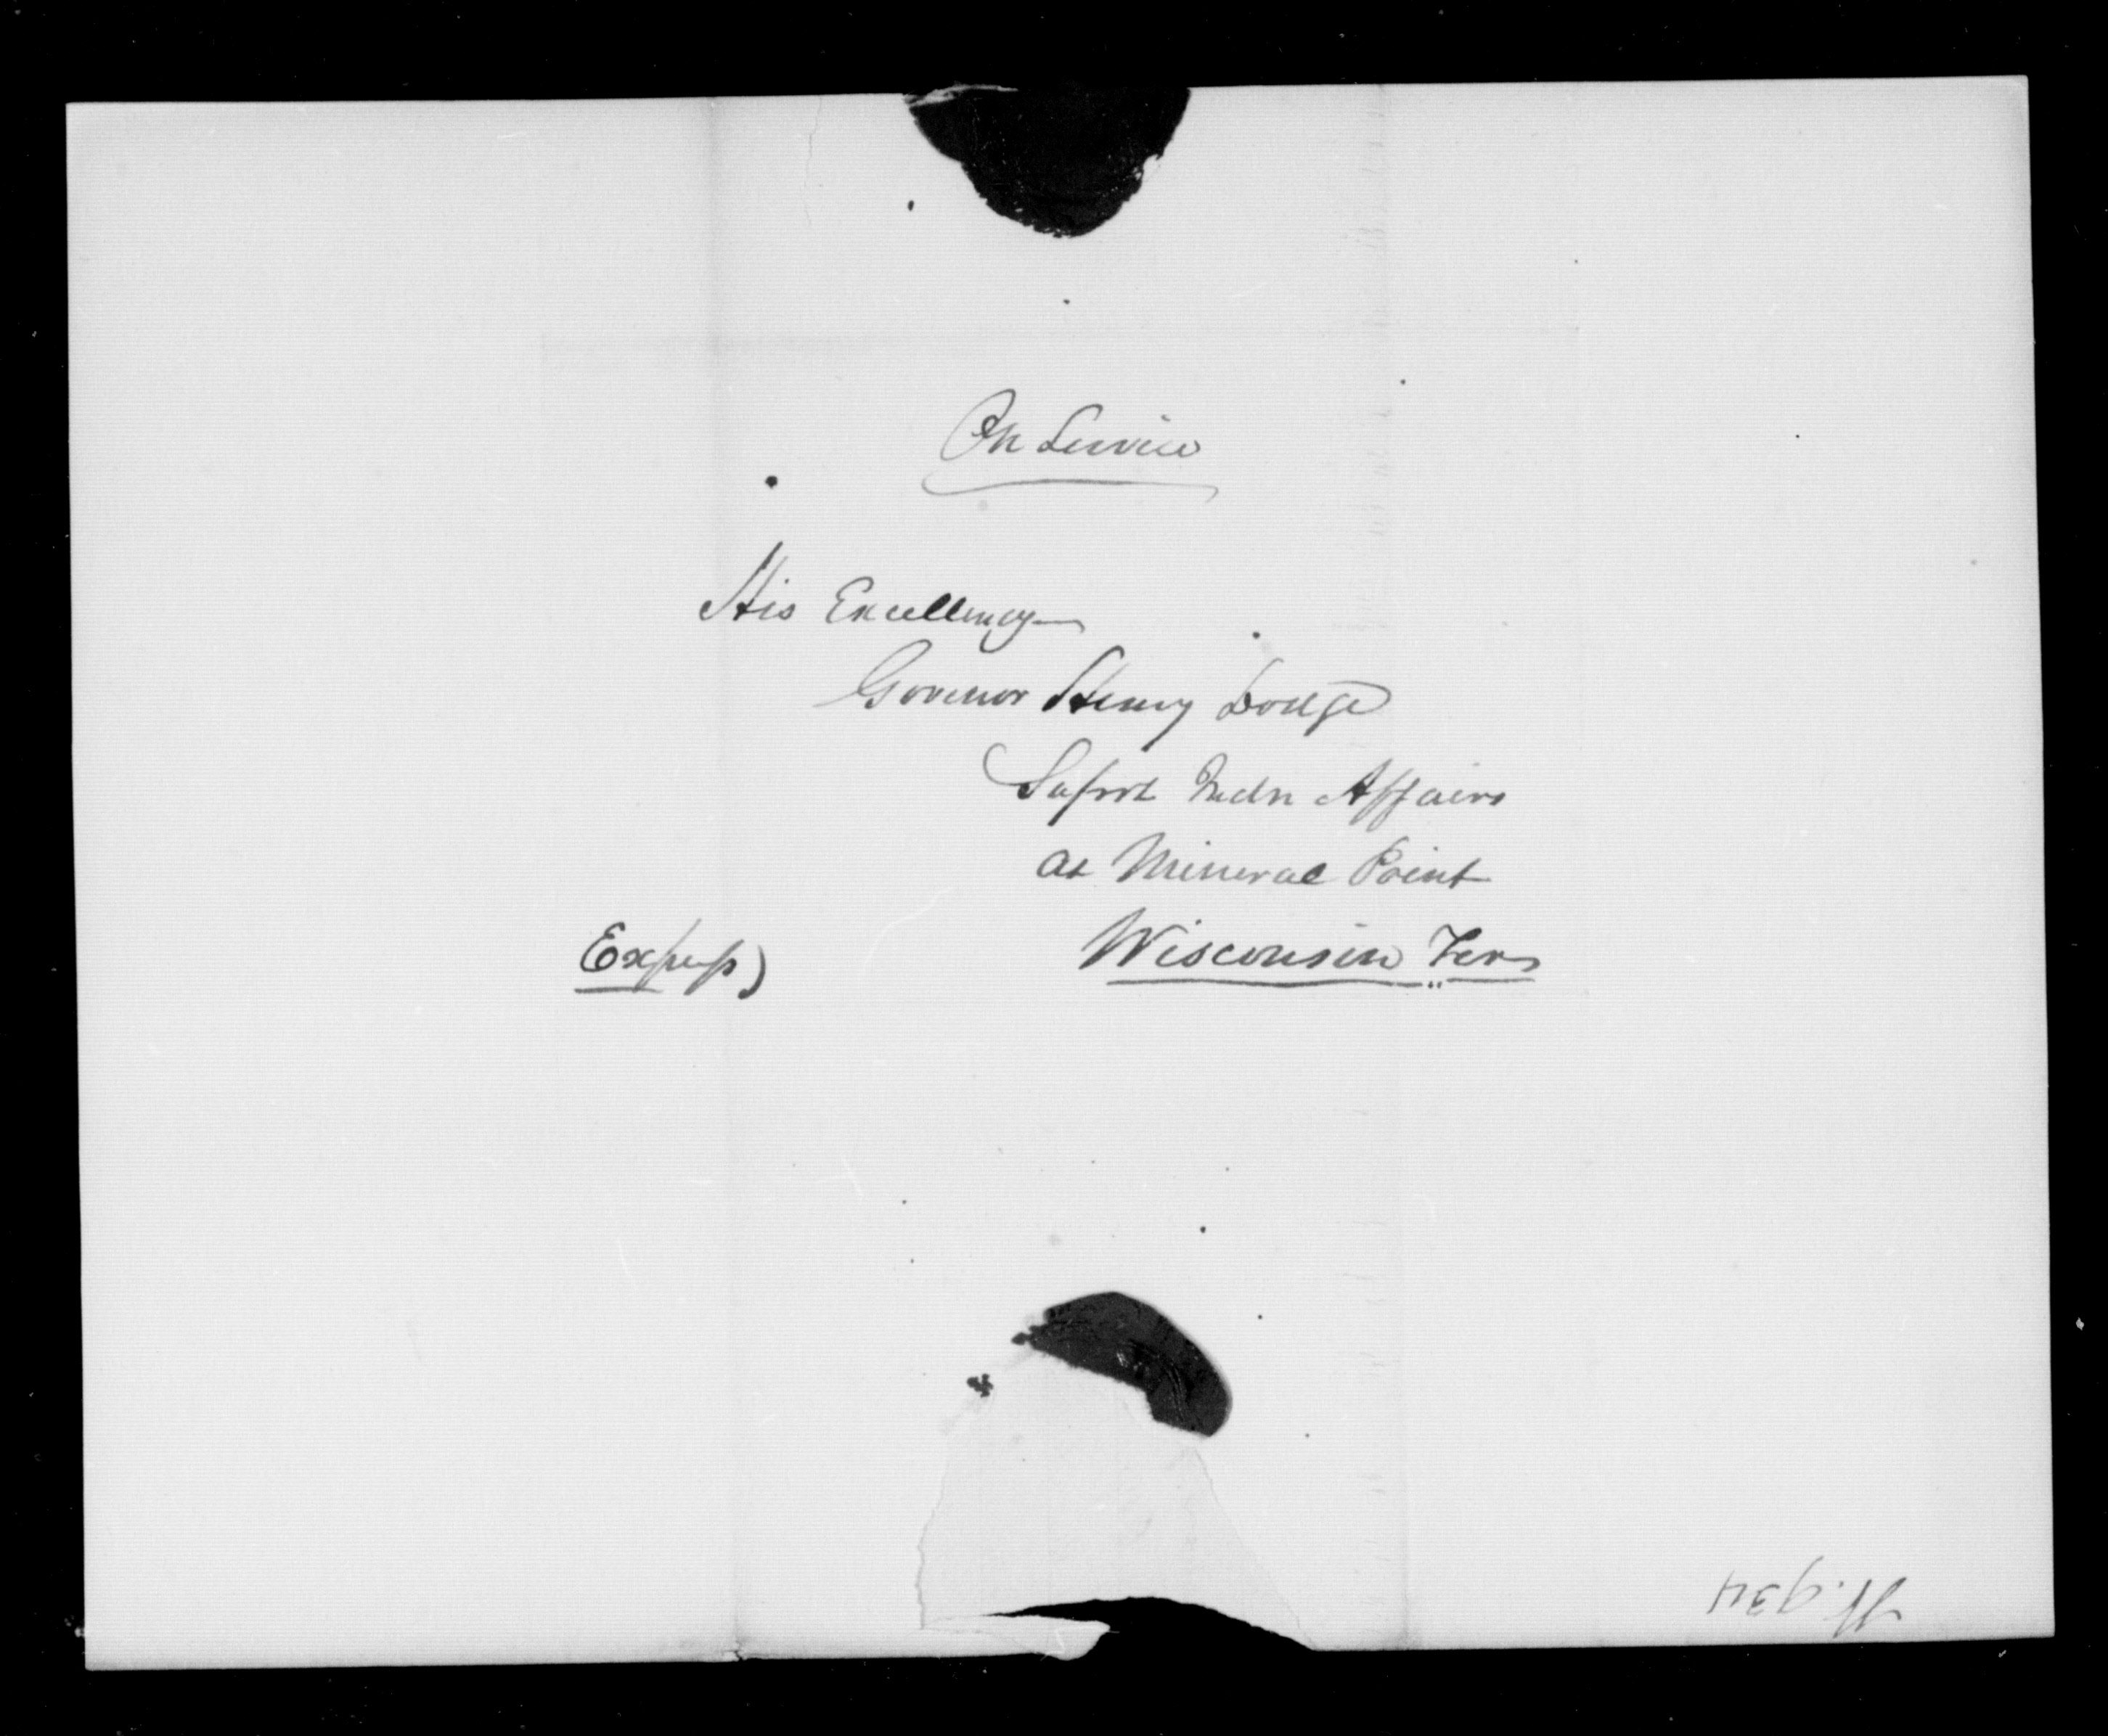 On Service
His Excellency
Govenor Henry Dodge
Suprt Indn Affairs
at Mineral Point
Wisconsin Ter
Express)